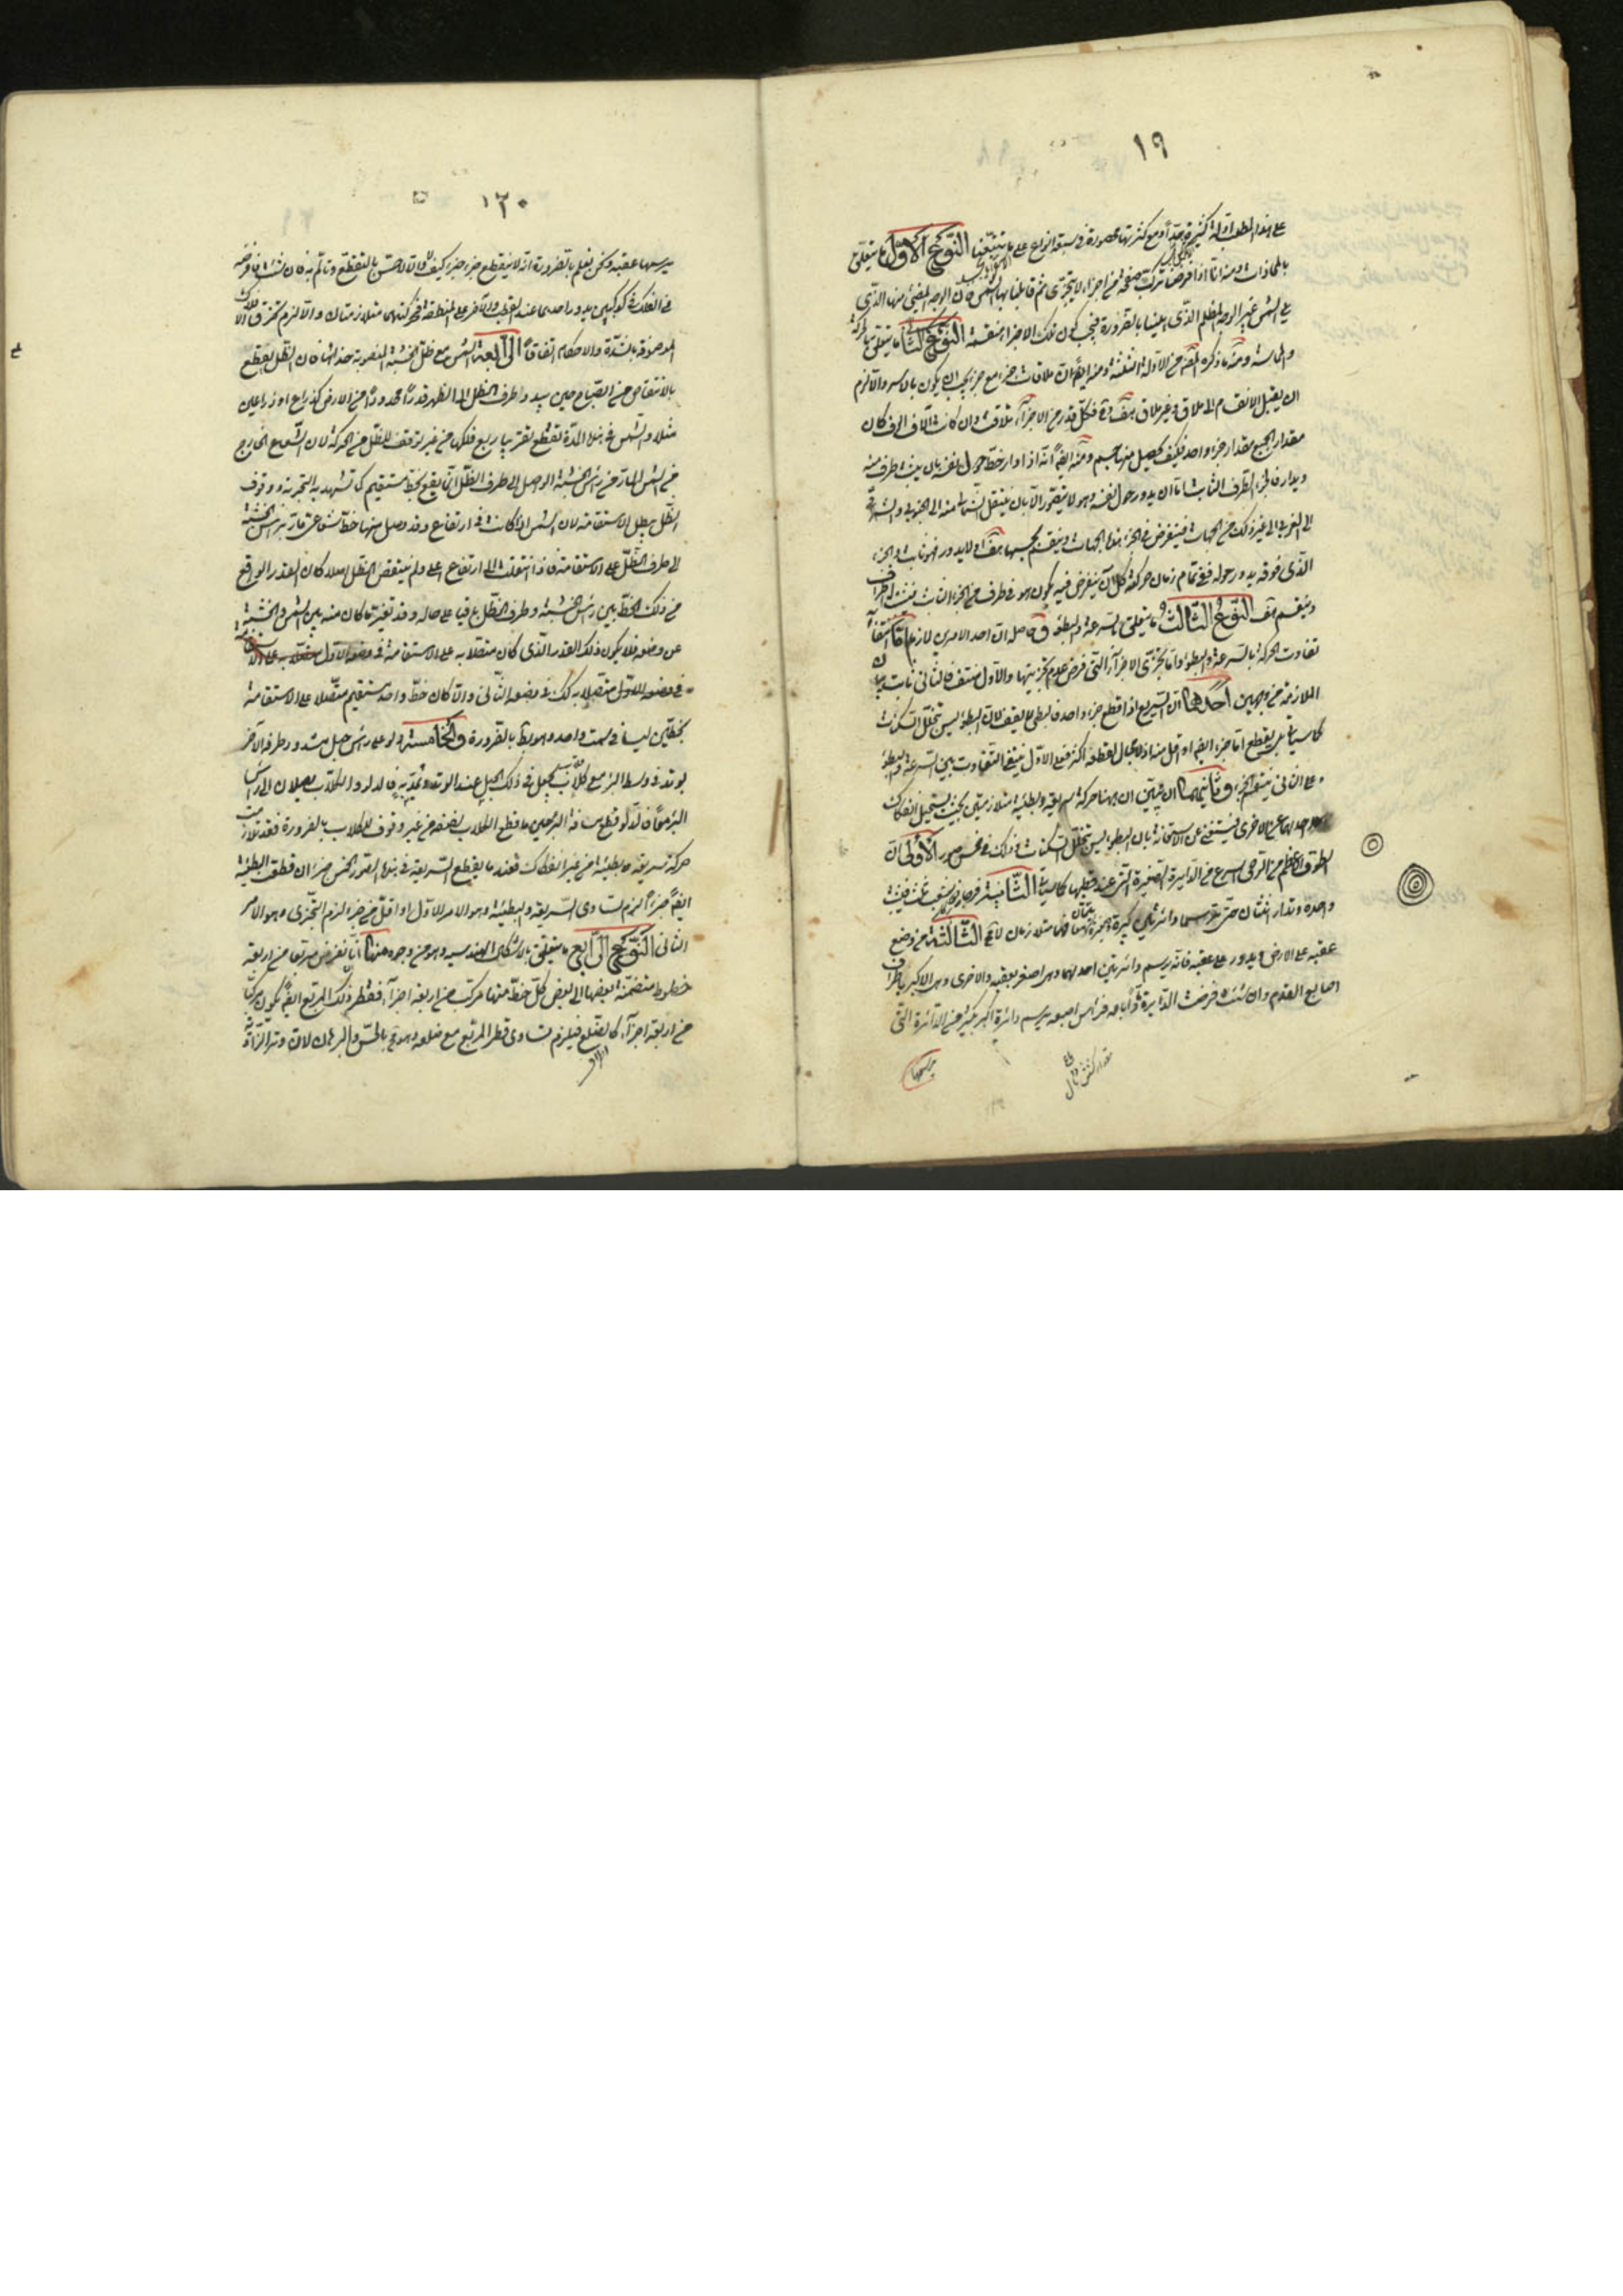 ١٩
على هذا المطلب ادلة كثيرة جدا ومع كثرتها محصورة في سبعة انواع على ما تتبعنا النوع الاول ما يتعلق
بالمحاذات ومنه انا اذا فرضنا تركب صفحة من اجزاء لا يتجزى ثم قابلنا بها الشمس فان الوجه المضيئ منها الذى
يلى الشمس غير الوجه المظلم الذى يلينا بالضرورة فيجب كون تلك الاجزاء منقسمة النوع الثانى ما يتعلق
والمماسة ومنه ما ذكره المصنف من الادلة الثلثة ومنه ايضا ان ملاقات جزء مع جزء يجب ان يكون بالاسر والا لزم
ان يقبل الانقسام الى ملاق وغير ملاق هف فكل قدر من الاجزاء تلاقت وان كانت آلاف الوف كان
مقدار الجميع مقدار جزء واحد فكيف يحصل منها جسم ومنه ايضا انه اذا ادار خط حول نفسه بان يثبت طرف منه
ويدار فالجزء الطرف الثابت اما ان يدور حول نفسه وهو لا يتصور الا بان ينتقل الشمال منه الى الجنوب والشرق
الى الغرب الى غير ذلك من الجهات فيفرض فى الجزء هذه الجهات وينقسم بحسبها هف او لا يدور فهو ثابت والجزء
الذى فوقه يدور حوله ففى تمام زمان حركته كل آن يفرض فيه يكون هو فى طرف من الجزء الثابت
وينقسم هف النوع الثالث ما يتعلق بالسرعة والبطؤ وحاصله ان احد الامرين لازم اما انتفاء
تفاوت الحركة بالسرعة والبطؤ واما تجزى الاجزاء التى فرض عدم تجزيتها والاول منتف فالثانى ثابت بيان
الملازمة من وجهين احدهما ان السريع اذا قطع جزء واحد فالبطى لا يقف لان البطؤ ليس بتخلل السكنات
كما سياتى بل يقطع اما جزء ايضا او اقل منه اذ لا مجال لقطعه اكثر فعلى الاول ينتفى التفاوت بين السرعة والبطؤ
وعلى الثانى ينقسم الجزء وثانيهما ان نبين ان ههنا حركة سريعة وبطيئة متلازمتين بحيث يستحيل انفكاك
احدهما عن الاخرى فيستغنى عن الاستعانة بان البطؤ ليس بتخلل السكنات وذلك فى خمس صور الاولى ان
الطوق العظيم من الرحى اسرع من الدايرة الصغيرة التى عند قطبها كما سياتى الثانية فرجار ذو شعب ثلث فيثبت
واحدة وتدار اثنتان حتى ترتسما دائرتين كبيرة وصغيرة فهما متلازمان لا محة الثالثة من وضع
عقبه على الارض ويدور على عقبه فانه يرسم دائرتين احدهما وهى اصغر بعقبه والاخرى وهى الاكبر باطراف
اصابع القدم وان شئت فرضت الدايرة ثم باعه فراس اصبعه يرسم دائرة اكبر بكثير من الدائرة التى
يرسمها
١٢٠
يرسمها عقبه ونحن نعلم بالضرورة انه لا ينقطع جزء جزء كيف ولا لاحس بالتقطع وتالم به فان شئت فافرضه
فى الفلك فى كوكبين يدور احدهما عند القطب والآخر على المنطقة فحركتهما متلازمتان والا لزم تخرق الافلاك
الموصوفة بالشدة والاحكام اتفاقا الرابعة الشمس مع ظل الخشبة المنصوبة حذائها فان الظل يقطع
بالانتقاص من الصباح حين يبدو طرف الظل الى الظهر قدرا محدودا من الارض كذراع او ذراعين
مثلا والشمس فى هذه المدة تقطع تقريبا ربع فلكها من غير توقف للظل من الحركة لان الشعاع الخارج
من الشمس المار من راس الخشبة الواصل الى طرف الظل انما يقع بخط مستقيم كما تشهد به التجربة ووقوف
الظل يبطل الاستقامة لان الشمس اذا كانت فى ارتفاع وقد وصل منها خط شعاعى مار براس الخشبة
الى طرف الظل على الاستقامة فاذا انتقلت الى ارتفاع اعلى ولم ينتقص الظل اصلا كان القدر الواقع
من ذلك الخط بين راس الخشبة وطرف الظل باقيا على حاله وقد تغير ما كان منه بين الشمس والخشبة
عن وضعه فلا يكون ذلك القدر الذى كان متصلا به على الاستقامة فى وضعه الاول
فى وضعه الاول متصلا به كك فى وضعه الثانى والا كان خط واحد مستقيم متصلا على الاستقامة
بخطين ليسا فى سمت واحد وهو بط بالضرورة والخامسة دلو على راس حبل مشدود طرفه الآخر
بوتد فى وسط البئر مع كلاب يجعل فى ذلك الحبل عند الوتد ويمد به فالدلو والكلاب يصلان الى راس
البئر معا فالدلو قطع مسافة البئر حين ما قطع الكلاب نصفه من غير وقوف للكلاب بالضرورة فقد تلازمت
حركة سريعة وبطيئة من غير انفكاك فعند ما يقطع السريعة فى هذه الصور الخمس جزء ان قطعت البطيئة
ايضا جزء لزم تساوى السريعة والبطيئة وهو الامر الاول او اقل من جزء لزم التجزى وهو الامر
الثانى النوع الرابع ما يتعلق بالاشكال الهندسيه وهو من وجوه منها انا نفرض مربعا من اربعة
خطوط منضمة بعضها الى بعض كل خط منها مركب من اربعة اجزاء فقطر ذلك المربع ايضا يكون مركبا
من اربعة اجزاء كالضلع فيلزم تساوى قطر المربع مع ضلعه وهو مح بالحس والبرهان لان وتر الزاوية